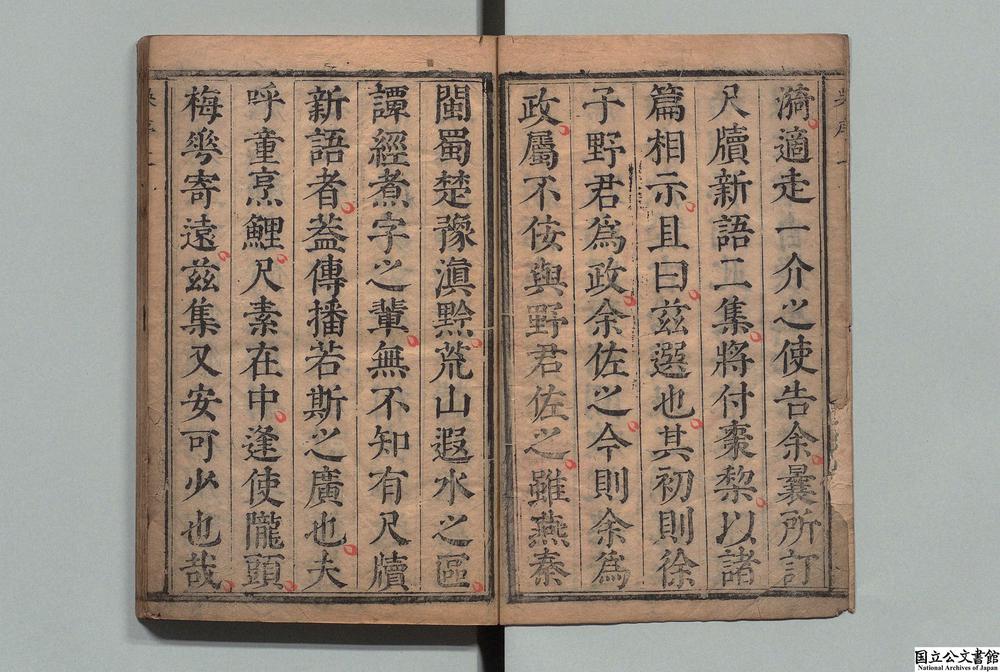 漪適走一介之使告余曩所訂
尺牘新語二集將付棗棃以諸
篇相示且曰茲選也其初則徐
子野君爲政余佐之今則余爲
政屬不佞與野君佐之雖燕秦
閩蜀楚豫滇黔荒山遐水之區
譚經煮字之輩無不知有尺牘
新語者葢傳播若斯之廣也夫
呼童烹鯉尺素在中逢使隴頭
梅花寄遠茲集又安可少也哉
国立公文書館
National Archives of Japan